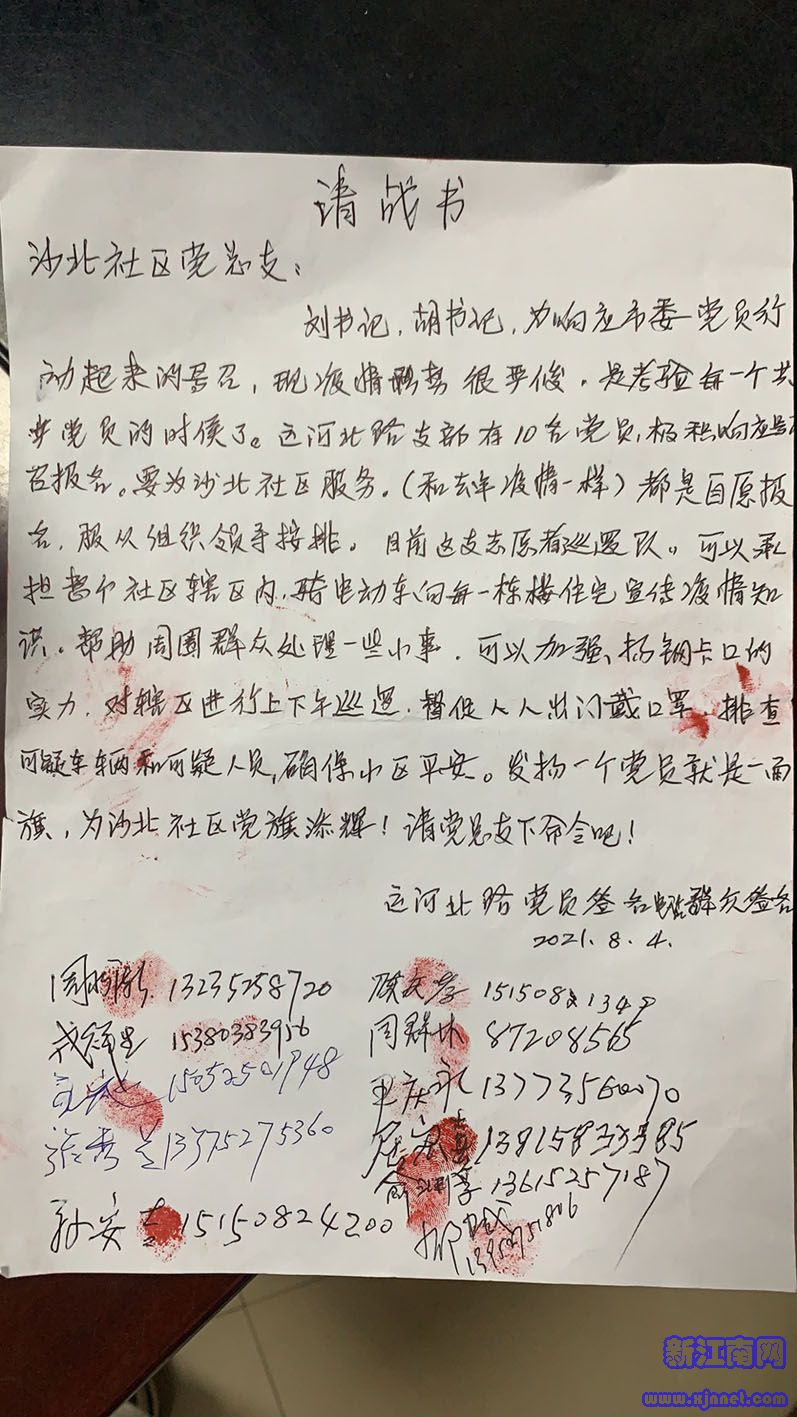 请战书
沙北社区党总支：
刘书记，胡书记，为响应市委党员行
动起来的号召，现疫情形势很严俊。是考验每一个共
产党员的时侯了。运河北路支部有10名党员，极积响应号
召报名。要为沙北社区服务。（和去年疫情一样）都是自愿报
名，服从组织领导按排。目前这支志愿者巡逻队。可以承
担整个社区辖区内，骑电动车向每一栋楼住宅宣传疫情知
识。帮助周围群众处理一些小事，可以加强、扬钢卡口的
实力，对辖区进行上下午巡逻，督促人人出门戴口罩、排查
可疑车辆和可疑人员，确保小区平安。发扬一个党员就是一面
旗，为沙北社区党旗添辉！请党总支下命令吧！
运河北路党员签名 群众签名
2021.8.4.
13235258720
15150821349
15380383956
周群 87208565
15052501948
王庆 13773560070
张 13375275360
13815833385
俞 13615257187
孙安 15150824200
13951806
新江南网
www.xjnnet.com